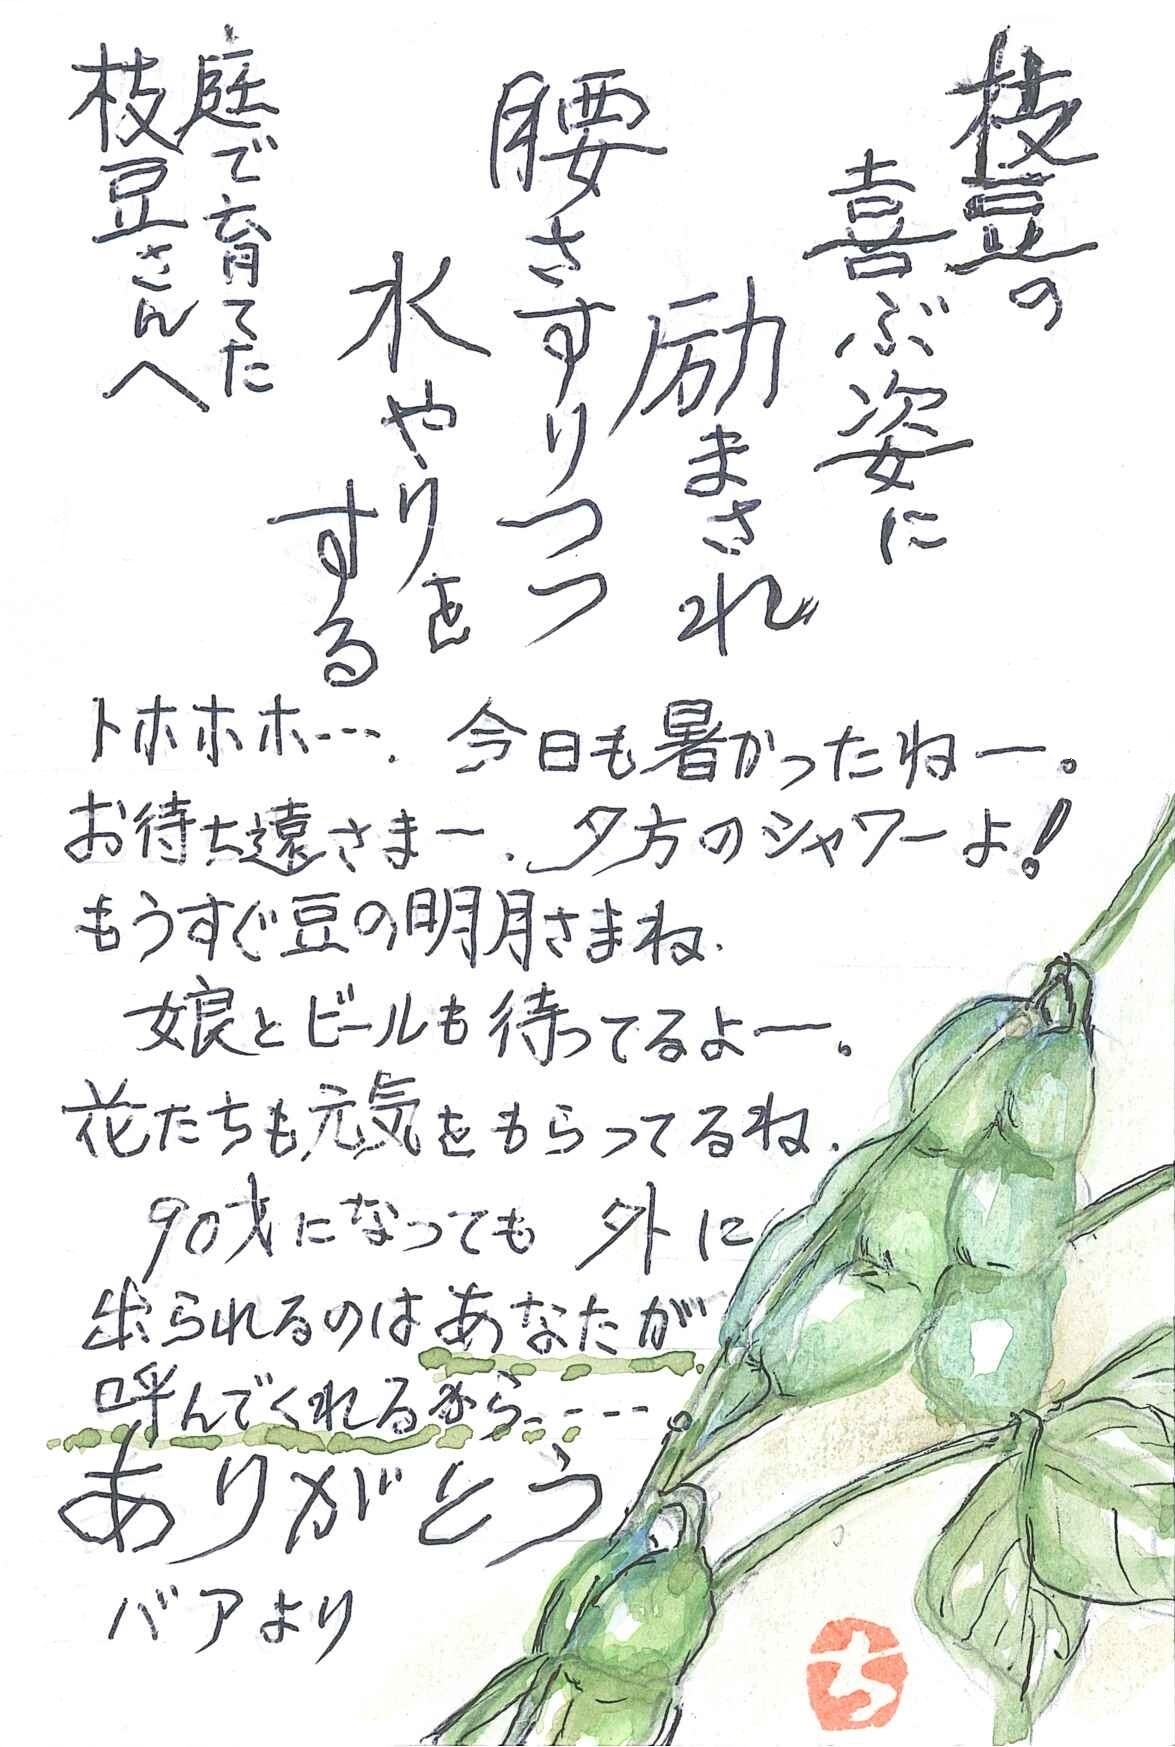 枝豆の
喜ぶ姿に
励まされ
腰さすりつつ
水やりを
する
庭で育てた
枝豆さんへ
トホホホ…、今日も暑かったねー。
お待ち遠さまー、夕方のシャワーよ!
もうすぐ豆の明月さまね、
娘とビールも待ってるよー。
花たちも元気をもらってるね、
90才になっても 外に
出られるのはあなたが
呼んでくれるから----。
ありがとう
バアより
ち